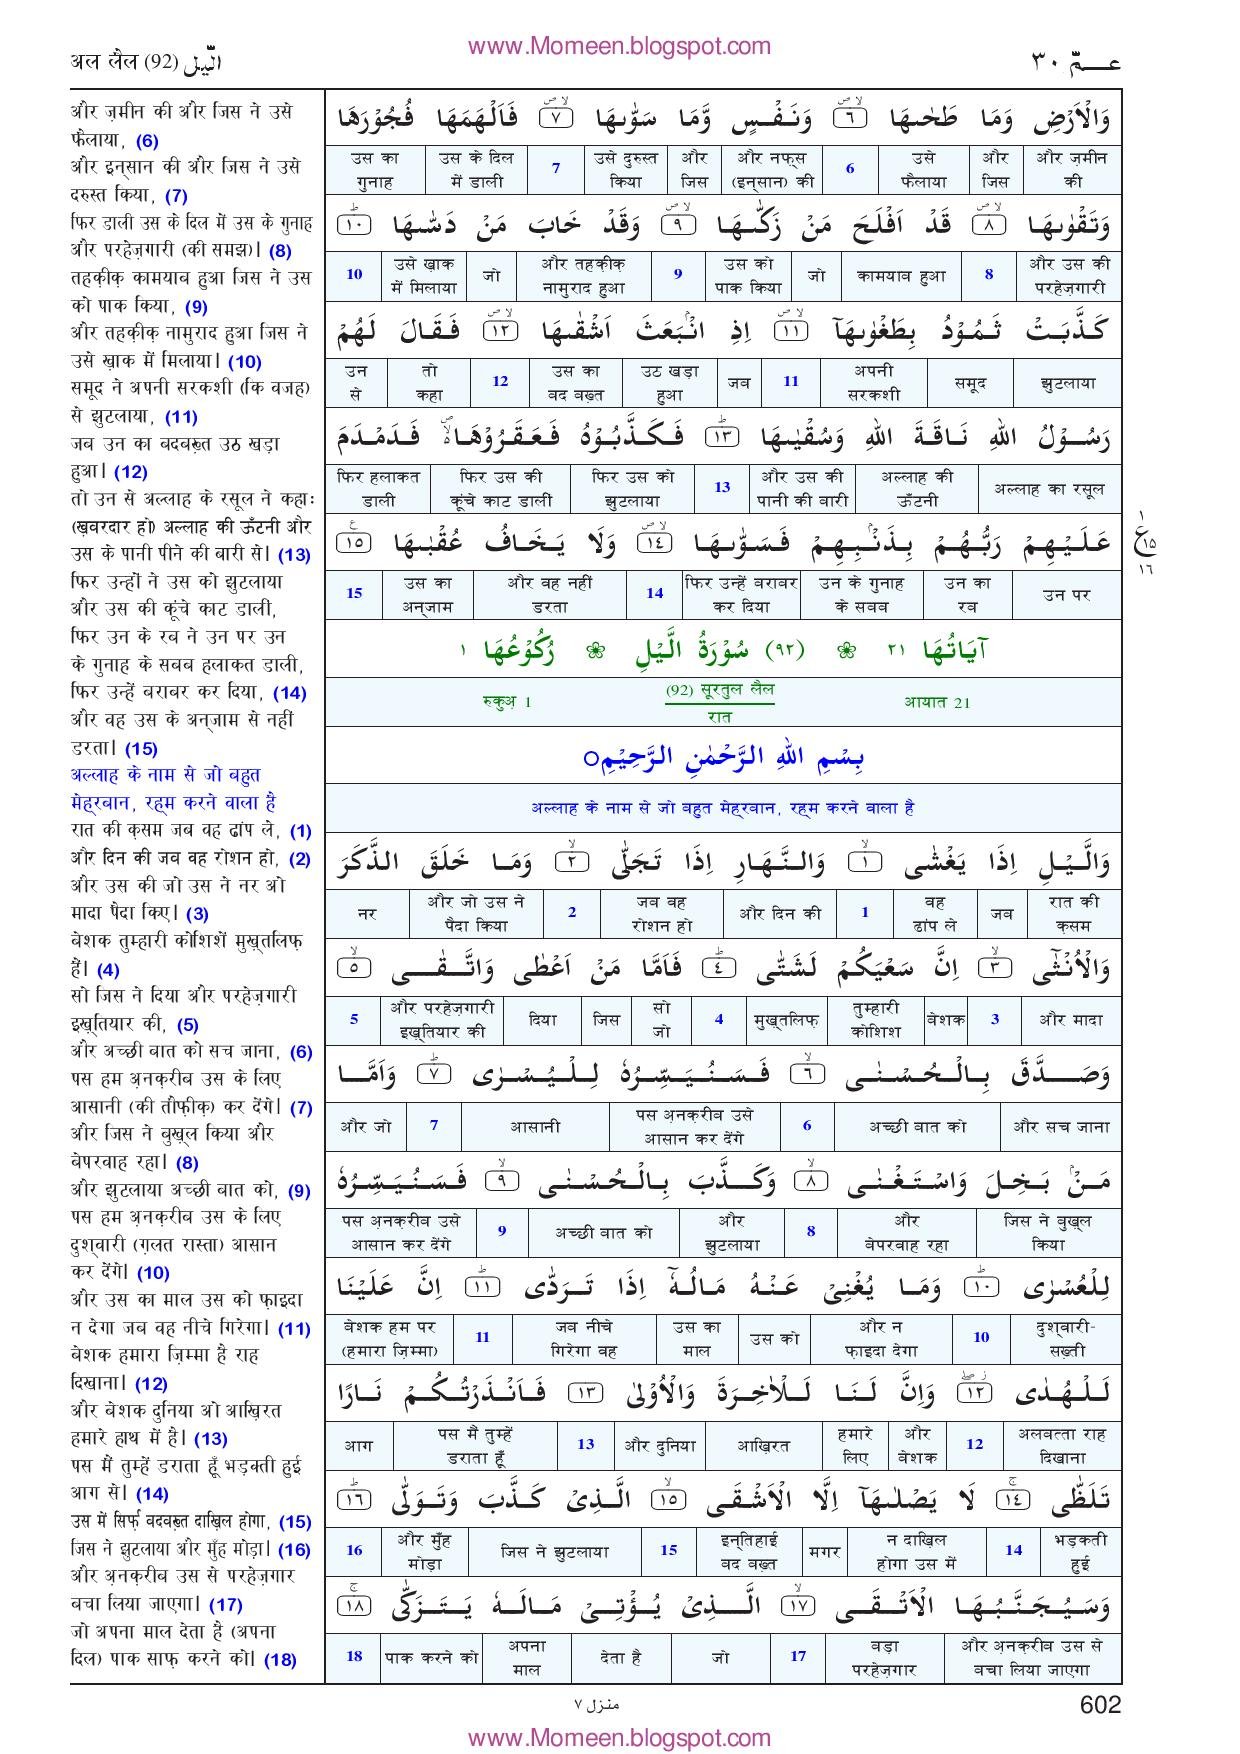 www.Momeen.blogspot.com
अल लैल (92) الّیل
عـمّ ۳۰
और ज़मीन की और जिस ने उसे
फैलाया, (6)
और इन्सान की और जिस ने उसे
दरुस्त किया, (7)
फिर डाली उस के दिल में उस के गुनाह
और परहेज़गारी (की समझ)। (8)
तहक़ीक़ कामयाब हुआ जिस ने उस
को पाक किया, (9)
और तहक़ीक़ नामुराद हुआ जिस ने
उसे ख़ाक में मिलाया। (10)
समूद ने अपनी सरकशी (कि वजह)
से झुटलाया, (11)
जब उन का बदबख़्त उठ खड़ा
हुआ। (12)
तो उन से अल्लाह के रसूल ने कहाः
(ख़बरदार हो) अल्लाह की ऊँटनी और
उस के पानी पीने की बारी से। (13)
फिर उन्हों ने उस को झुटलाया
और उस की कूंचे काट डाली,
फिर उन के रब ने उन पर उन
के गुनाह के सबब हलाकत डाली,
फिर उन्हें बराबर कर दिया, (14)
और वह उस के अन्जाम से नहीं
डरता। (15)
अल्लाह के नाम से जो बहुत
मेह्रबान, रहम करने वाला है
रात की क़सम जब वह ढांप ले, (1)
और दिन की जब वह रोशन हो, (2)
और उस की जो उस ने नर ओ
मादा पैदा किए। (3)
बेशक तुम्हारी कोशिशें मुख़्तलिफ़
हैं। (4)
सो जिस ने दिया और परहेज़गारी
इख़्तियार की, (5)
और अच्छी बात को सच जाना, (6)
पस हम अ़नक़रीब उस के लिए
आसानी (की तौफ़ीक़) कर देंगे। (7)
और जिस ने बुख़्ल किया और
बेपरवाह रहा। (8)
और झुटलाया अच्छी बात को, (9)
पस हम अ़नक़रीब उस के लिए
दुश्वारी (ग़लत रास्ता) आसान
कर देंगे। (10)
और उस का माल उस को फ़ाइदा
न देगा जब वह नीचे गिरेगा। (11)
बेशक हमारा ज़िम्मा है राह
दिखाना। (12)
और बेशक दुनिया ओ आख़िरत
हमारे हाथ में है। (13)
पस मैं तुम्हें डराता हूँ भड़क्ती हुई
आग से। (14)
उस में सिर्फ़ बदबख़्त दाख़िल होगा, (15)
जिस ने झुटलाया और मुँह मोड़ा। (16)
और अ़नक़रीब उस से परहेज़गार
बचा लिया जाएगा। (17)
जो अपना माल देता है (अपना
दिल) पाक साफ़ करने को। (18)
وَالْاَرْضِ وَمَا طَحٰىهَا ۶ وَنَفْسٍ وَّمَا سَوّٰىهَا ۷ فَاَلْهَمَهَا فُجُوْرَهَا
और ज़मीन की | और जिस | उसे फैलाया | 6 | और नफ्स (इन्सान) की | और जिस | उसे दुरुस्त किया | 7 | उस के दिल में डाली | उस का गुनाह
وَتَقْوٰىهَا ۸ قَدْ اَفْلَحَ مَنْ زَكّٰىهَا ۹ وَقَدْ خَابَ مَنْ دَسّٰىهَا ۱۰
और उस की परहेज़गारी | 8 | कामयाब हुआ | जो | उस को पाक किया | 9 | और तहक़ीक़ नामुराद हुआ | जो | उसे ख़ाक में मिलाया | 10
كَذَّبَتْ ثَمُوْدُ بِطَغْوٰىهَآ ۱۱ اِذِ انْۢبَعَثَ اَشْقٰىهَا ۱۲ فَقَالَ لَهُمْ
झुटलाया | समूद | अपनी सरकशी | 11 | जब | उठ खड़ा हुआ | उस का बद बख़्त | 12 | तो कहा | उन से
رَسُوْلُ اللهِ نَاقَةَ اللهِ وَسُقْيٰىهَا ۱۳ فَكَذَّبُوْهُ فَعَقَرُوْهَا فَدَمْدَمَ
अल्लाह का रसूल | अल्लाह की ऊँटनी | और उस की पानी की बारी | 13 | फिर उस को झुटलाया | फिर उस की कूंचे काट डाली | फिर हलाकत डाली
عَلَيْهِمْ رَبُّهُمْ بِذَنْۢبِهِمْ فَسَوّٰىهَا ۱۴ وَلَا يَخَافُ عُقْبٰىهَا ۱۵
ع ۱ ۱۵ ۱۶
उन पर | उन का रब | उन के गुनाह के सबब | फिर उन्हें बराबर कर दिया | 14 | और वह नहीं डरता | उस का अन्जाम | 15
آيَاتُهَا ۲۱ ❀ (۹۲) سُوْرَةُ الَّيْلِ ❀ رُكُوْعُهَا ۱
आयात 21 | (92) सूरतुल लैल रात | रुकुअ़ 1
بِسْمِ اللهِ الرَّحْمٰنِ الرَّحِيْمِ
अल्लाह के नाम से जो बहुत मेह्रबान, रहम करने वाला है
وَالَّيْلِ اِذَا يَغْشٰى ۱ وَالنَّهَارِ اِذَا تَجَلّٰى ۲ وَمَا خَلَقَ الذَّكَرَ
रात की क़सम | जब | वह ढांप ले | 1 | और दिन की | जब वह रोशन हो | 2 | और जो उस ने पैदा किया | नर
وَالْاُنْثٰٓى ۳ اِنَّ سَعْيَكُمْ لَشَتّٰى ۴ فَاَمَّا مَنْ اَعْطٰى وَاتَّقٰى ۵
और मादा | 3 | बेशक | तुम्हारी कोशिश | मुख़्तलिफ़ | 4 | सो जो | जिस | दिया | और परहेज़गारी इख़्तियार की | 5
وَصَدَّقَ بِالْحُسْنٰى ۶ فَسَنُيَسِّرُهٗ لِلْيُسْرٰى ۷ وَاَمَّا
और सच जाना | अच्छी बात को | 6 | पस अ़नक़रीब उसे आसान कर देंगे | आसानी | 7 | और जो
مَنْۢ بَخِلَ وَاسْتَغْنٰى ۸ وَكَذَّبَ بِالْحُسْنٰى ۹ فَسَنُيَسِّرُهٗ
जिस ने बुख़्ल किया | और बेपरवाह रहा | 8 | और झुटलाया | अच्छी बात को | 9 | पस अ़नक़रीब उसे आसान कर देंगे
لِلْعُسْرٰى ۱۰ وَمَا يُغْنِيْ عَنْهُ مَالُهٗٓ اِذَا تَرَدّٰى ۱۱ اِنَّ عَلَيْنَا
दुश्वारी-सख़्ती | 10 | और न फ़ाइदा देगा | उस को | उस का माल | जब नीचे गिरेगा वह | 11 | बेशक हम पर (हमारा ज़िम्मा)
لَلْهُدٰى ۱۲ وَاِنَّ لَنَا لَلْاٰخِرَةَ وَالْاُوْلٰى ۱۳ فَاَنْذَرْتُكُمْ نَارًا
अलबत्ता राह दिखाना | 12 | और बेशक | हमारे लिए | आख़िरत | और दुनिया | 13 | पस मैं तुम्हें डराता हूँ | आग
تَلَظّٰى ۱۴ لَا يَصْلٰىهَآ اِلَّا الْاَشْقَى ۱۵ الَّذِيْ كَذَّبَ وَتَوَلّٰى ۱۶
भड़कती हुई | 14 | न दाख़िल होगा उस में | मगर | इन्तिहाई बद बख़्त | 15 | जिस ने झुटलाया | और मुँह मोड़ा | 16
وَسَيُجَنَّبُهَا الْاَتْقَى ۱۷ الَّذِيْ يُؤْتِيْ مَالَهٗ يَتَزَكّٰى ۱۸
और अ़नक़रीब उस से बचा लिया जाएगा | बड़ा परहेज़गार | 17 | जो | देता है | अपना माल | पाक करने को | 18
منزل ۷
602
www.Momeen.blogspot.com